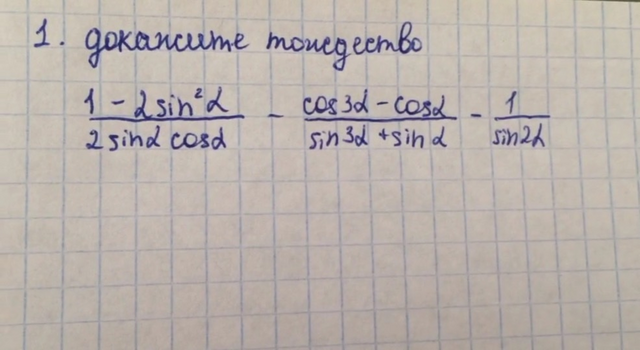 1. докажите тождество
1 - 2sin²α / 2sinα cosα - cos3α - cosα / sin3α + sinα - 1 / sin2α